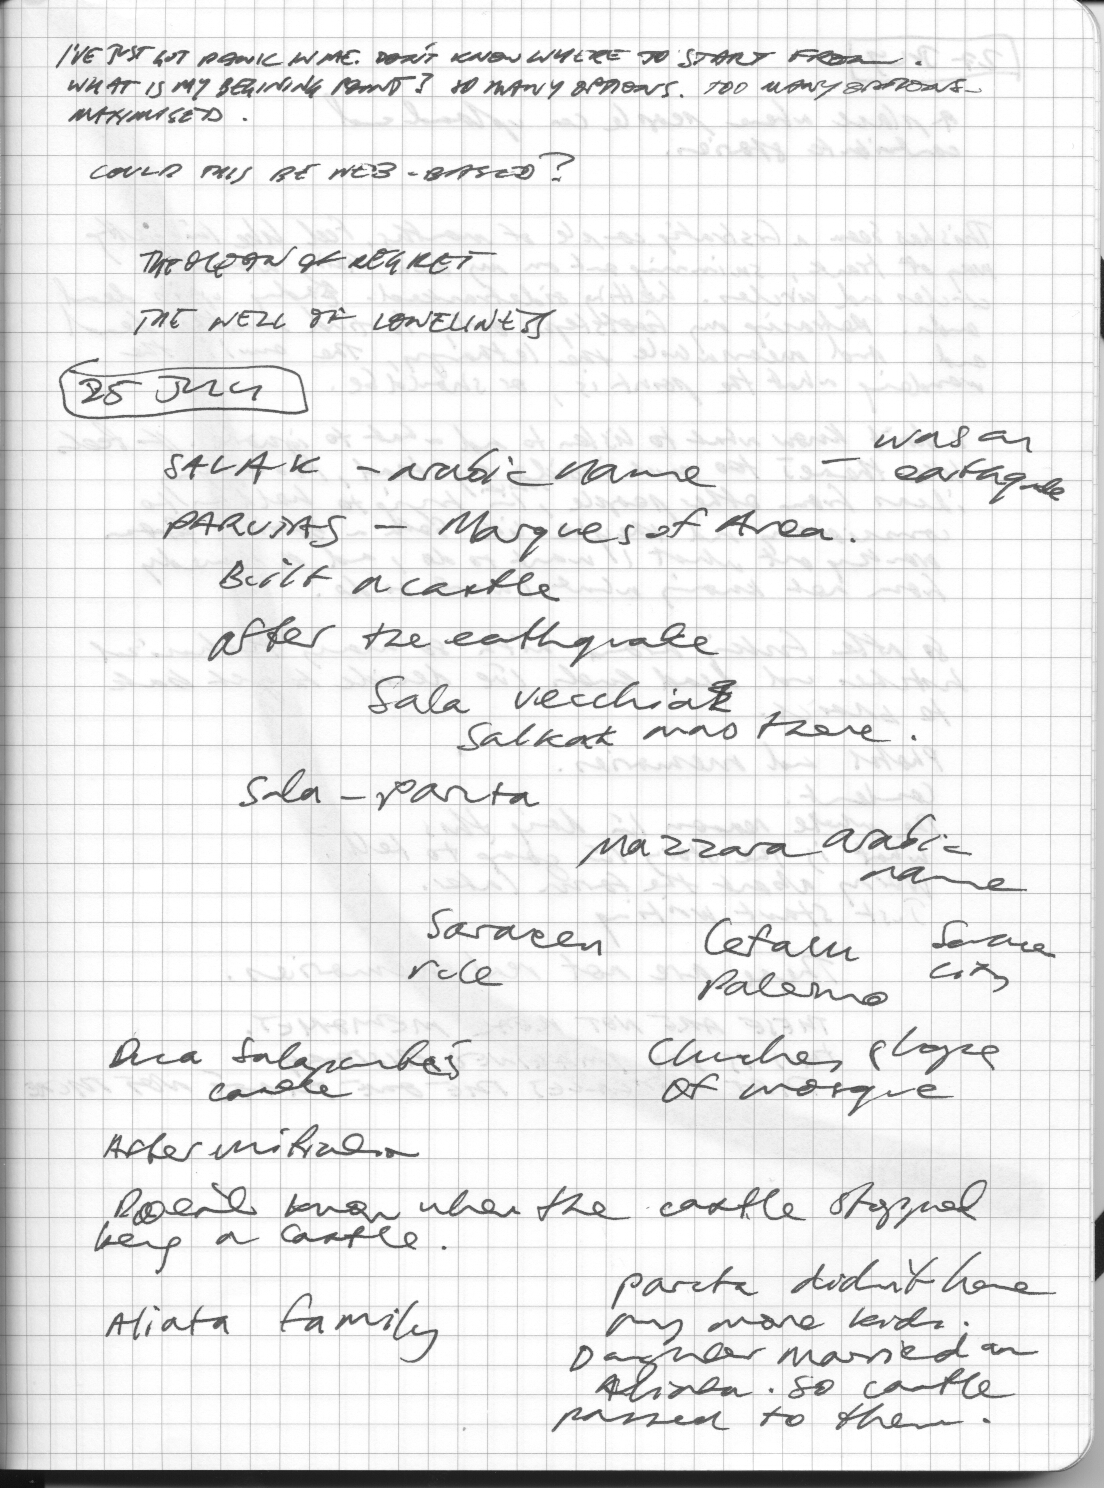 I'VE JUST GOT PANIC IN ME. DON'T KNOW WHERE TO START FROM.
WHAT IS MY BEGINING POINT? SO MANY OPTIONS. TOO MANY OPTIONS -
MAXIMISED.
COULD THIS BE WEB-BASED?
THE OCEAN OF REGRET
THE WELL OF LONELINESS
25 JULY
SALAK - arabic name - was an
earthquake
PARUTAS - Marques of Area.
Built a castle
after the eathquake
Sala vecchia
mas there.
Sala - paruta
Mazzara arabic
name
Saracen Cefalu
rule Palermo city
Duca Salaparuta's Churches, shape
castle of mosque
After
know when the castle stopped
being a castle.
paruta didn't have
Aliata family any more kids.
Daughter married an
Aliata. so castle
passed to them.